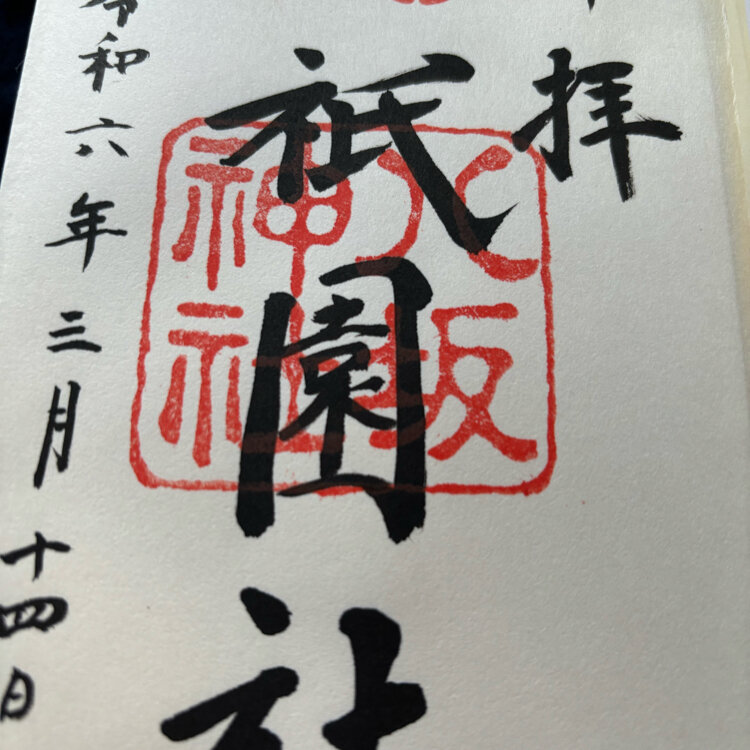 拝
祇園社
八坂
神社
令和六年三月十四日